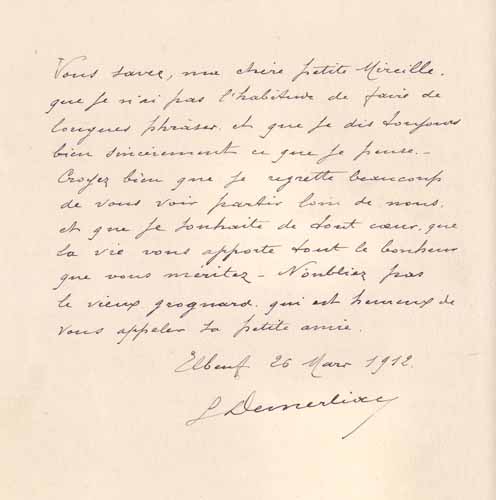 Vous savez, ma chère petite Mireille,
que je n'ai pas l'habitude de faire de
longues phrases, et que je dis toujours
bien sincèrement ce que je pense. -
Croyez bien que je regrette beaucoup
de vous voir partir loin de nous,
et que je souhaite de tout cœur, que
la vie vous apporte tout le bonheur
que vous méritez - N'oubliez pas
le vieux grognard, qui est heureux de
vous appeler sa petite amie.
Elbeuf 26 Mars 1912.